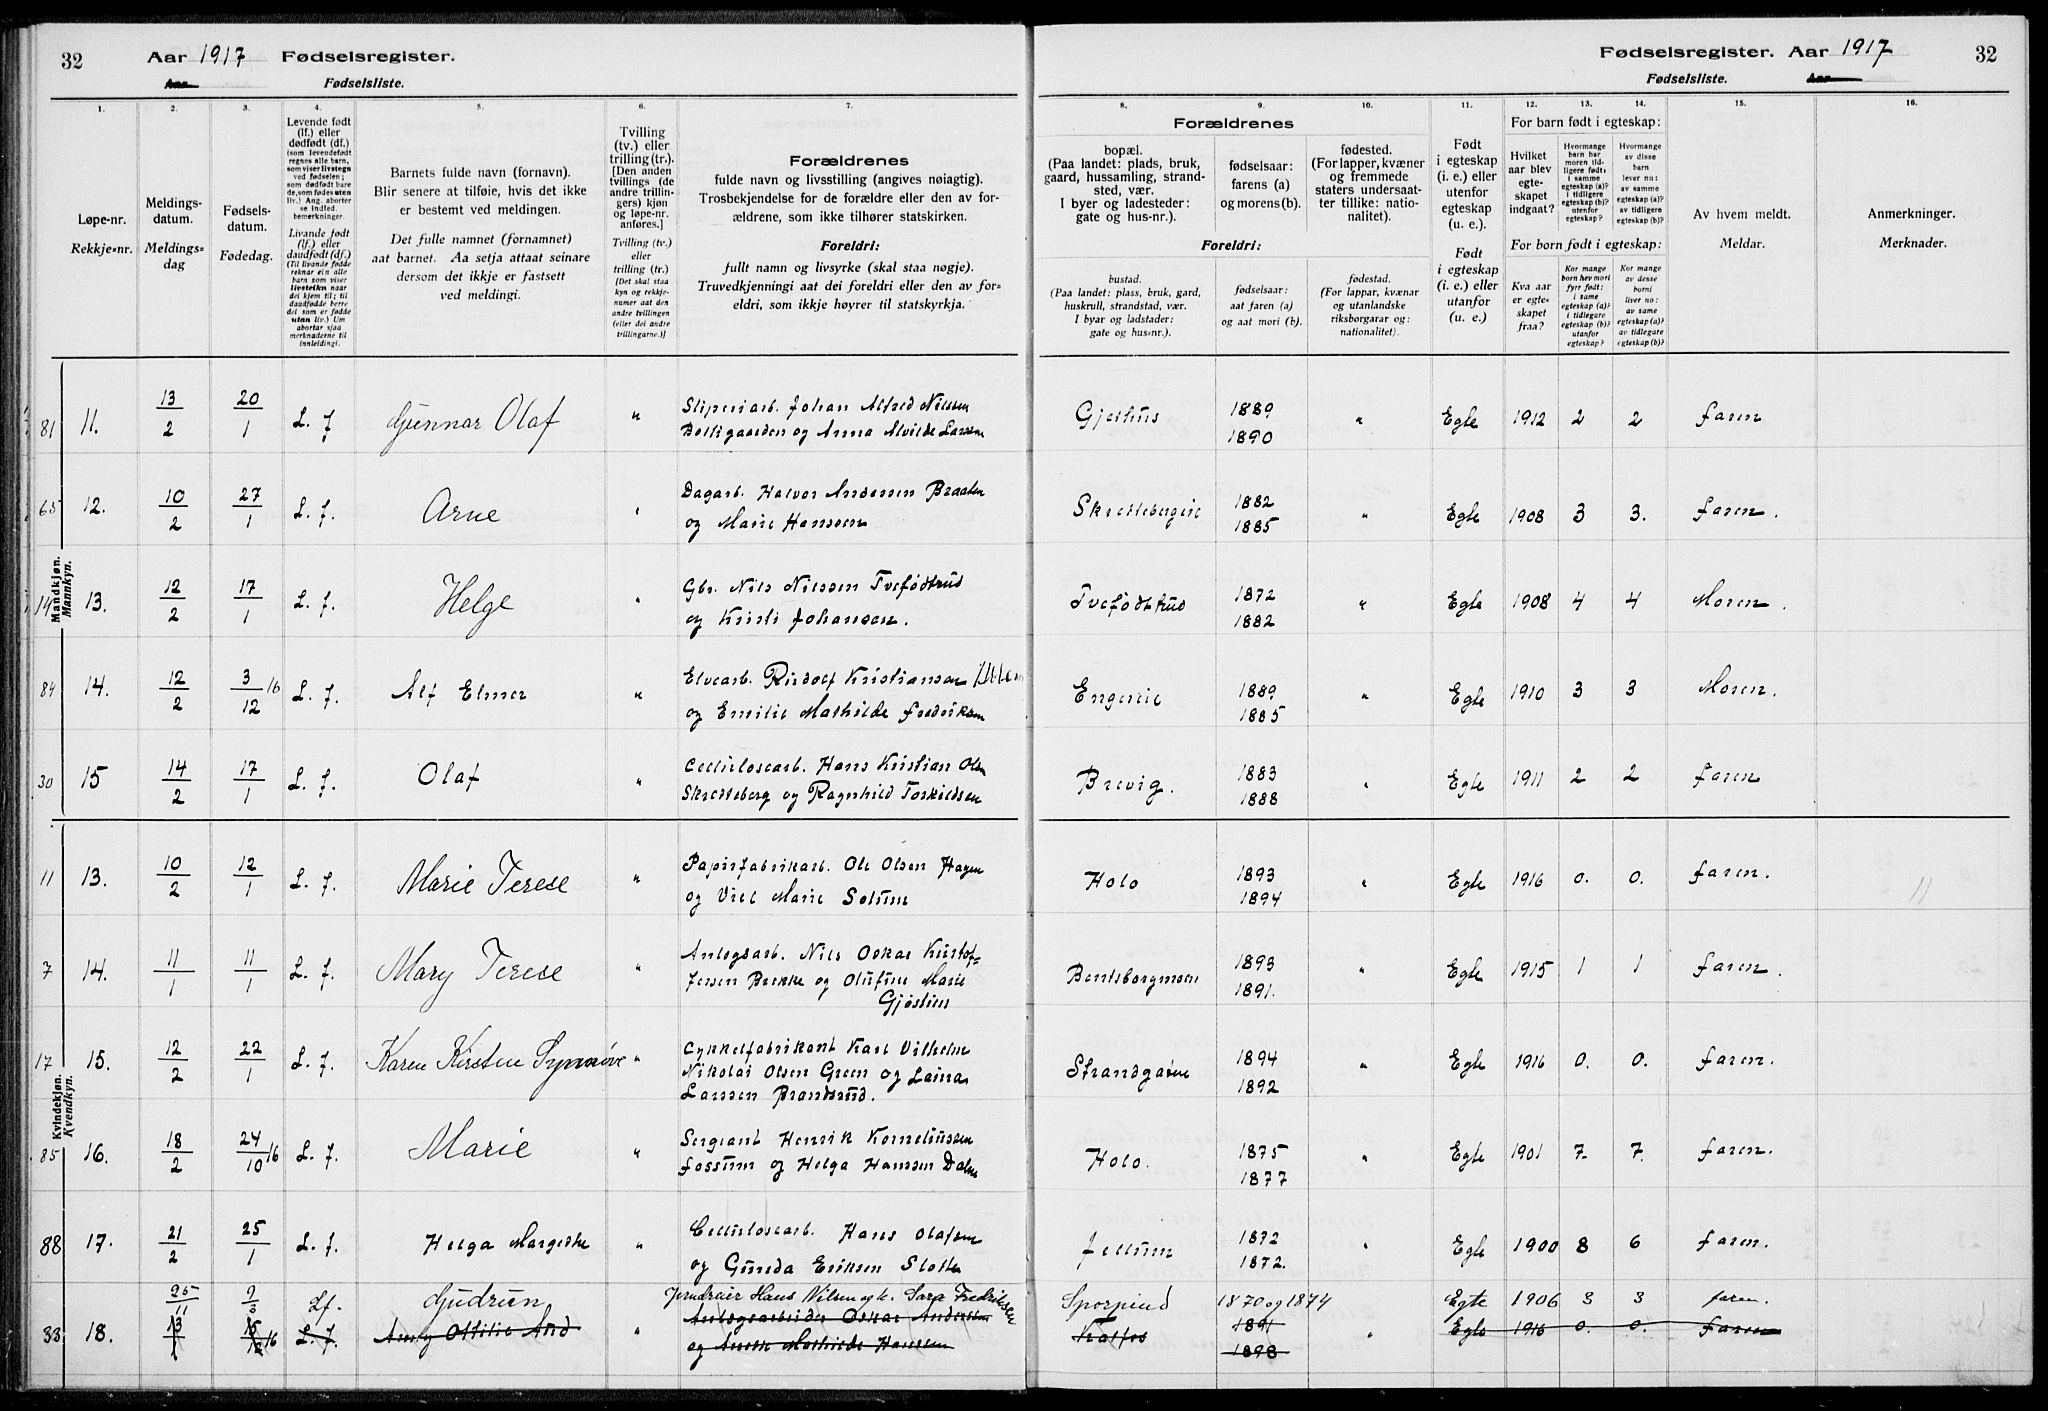 32 Aar 1917 Fødselsregister.
Aar Fødselsliste.
Fødselsregister. Aar 1917 32
Fødselsliste. Aar
1.
2.
3.
4.
5.
6.
7.
8.
9.
10.
11.
12.
13.
14.
15.
16.
Løpe-nr.
Rekkje-nr.
Meldings-
datum.
Meldings-
dag
Fødsels-
datum.
Fødedag.
Levende født
(lf.) eller
dødfødt (df.)
(som levendefødt
regnes alle barn,
som viser livstegn
ved fødselen;
som dødfødt bare
de, som fødes uten
liv.) Ang. aborter
se indled.
bemerkninger.
Livande født
(lf.) eller
daudfødt (df.)
(Til livande fødde
reknar ein alle
barn som viser
livsteikn naar
dei kjem til; til
daudfødde berre
dei som er fødde
utan liv.) Um
abortar sjaa
merknaderne til
innleidingi.
Barnets fulde navn (fornavn).
Blir senere at tilføie, hvis det ikke
er bestemt ved meldingen.
Det fulle namnet (fornamnet)
aat barnet. Aa setja attaat seinare
dersom det ikkje er fastsett
ved meldingi.
Tvilling
(tv.) eller
trilling (tr.).
[Den anden
tvillings (de
andre trillin-
gers) kjøn
og løpe-nr.
anføres.]
Tvilling (tv.)
eller
trilling (tr.)
[Det skal staa
kyn og rekkje-
numer aat den
andre tvillingen
(eller dei andre
trillingarne.)]
Forældrenes
fulde navn og livsstilling (angives nøiagtig).
Trosbekjendelse for de forældre eller den av for-
ældrene, som ikke tilhører statskirken.
Foreldri:
fullt namn og livsyrke (skal staa nøgje).
Truvedkjenningi aat dei foreldri eller den av for-
eldri, som ikkje høyrer til statskyrkja.
Forældrenes
bopæl.
(Paa landet: plads, bruk,
gaard, hussamling, strand-
sted, vær.
I byer og ladesteder:
gate og hus-nr.).
fødselsaar:
farens (a)
og morens (b).
fødested.
(For lapper, kvæner
og fremmede
staters undersaat-
ter tillike: natio-
nalitet).
Foreldri:
bustad.
(Paa landet: plass, bruk, gard,
huskrull, strandstad, vær.
I byar og ladstader:
gate og hus-nr.).
fødselsaar:
aat faren (a)
og aat mori (b).
fødestad.
(For lappar, kvænar
og utanlandske
riksborgarar og:
nationalitet).
Født
i egteskap
(i. e.) eller
utenfor
egteskap
(u. e.).
Født
i egteskap
(i. e.) eller
utanfor
(u. e.)
For barn født i egteskap:
Hvilket
aar blev
egte-
skapet
indgaat?
Hvormange
barn har
moren tid-
ligere født:
i samme
egteskap (a)?
i tidligere
egteskap (b)?
utenfor
egteskap?
Hvormange
av disse
barn
lever nu:
av samme
egteskap (a)?
av tidligere
egteskap (b)?
For born født i egteskap:
Kva aar
er egte-
skapet
fraa?
Kor mange
born hev mori
fyrr født:
i same
egteskap (a)?
i tidlegare
egteskap (b)?
utanfor
egteskap?
Kor mange
av desse
borni
liver no:
av same
egteskap (a)?
av tidlegare
egteskap (b)?
Av hvem meldt.
Meldar.
Anmerkninger.
Merknader.
Mandkjøn.
Mannkyn.
81 11. 13/2 20/1 L. f Gunnar Olaf " Sliperiarb. Johan Alfred Nilssen
Bolligaarden og Anna Alvilde Larssen
Gjethus 1889 1890 " Egte 1912 2 2 faren
65 12. 10/2 27/1 L. f. Arne " Dagarb. Halvor Andersen Braaten
og Marie Hanssen
1882 1885 " Egte 1908 3 3. faren.
14 13. 12/2 17/1 L. f. Helge " Gbr. Nils Nilssen Tvefødtrud
og Kristi Johansen.
Tvefødtrud 1872 1882 " Egte 1908 4 4 Moren.
84 14. 12/2 3/12 16 L. f. Alf Elmer " Elvearb. Rudolf Kristiansen
og Emilie Mathilde Fredriksen
Engerie 1889 1885 " Egte 1910 3 3 Moren.
30 15 14/2 17/1 L. f. Olaf " Cellulosearb. Hans Kristian Olsen
Skretteberg og Ragnhild Torkildsen
Brevig. 1883 1888 " Egte 1911 2 2 faren
11 13. 10/2 12/1 L. f. Marie Terese " Papirfabrikarb. Ole Olsen Hagen
og Marie Solum
Holo 1893 1894 " Egte 1916 0. 0. faren. 11
7 14. 11/1 11/1 L. f. Mary Terese " Anlegsarb. Nils Oskar Kristof-
fersen Brekke og Olufine Marie
Gjøstien
Bentsborgmoen 1893 1891. " Egte 1915 1 1 faren.
Kvindekjøn.
Kvendkyn.
17 15. 12/2 22/1 L. f. Karen Kirsten Synnøve " Cykkelfabrikant Karl Vilhelm
Nikolai Olsen Green og Laina
Larssen Brandsrud.
Strandgaten 1894 1892 " Egte 1916 0. 0. faren.
85 16. 18/2 24/10 16 L. f. Marie " Sergeant Henrik Korneliussen
Fossum og Helga Hanssen Dalen
Holo. 1875 1877 " Egte 1901 7. 7. faren.
88 17. 21/2 25/1 L. f. Helga Margethe " Cellulosearb. Hans Olafsen
og Gunda Eriksen Sletta
Jellum 1872 1872. " Egte 1900 8 6 faren.
25/11 9/3 Lf. Gudrun Hans Nilsen og h. Sara Fredriksen
Sporpind 1870 og 1874 Egte 1906 3 3 faren.
33. 18. 13/1 15/12 16 L. f. Anny Ottilie Aud " Anlegsarbeider Oskar Andersen
og Anette Mathilde Hanssen
Kalfos 1891 1898 " Egte 1916 0. 0. faren